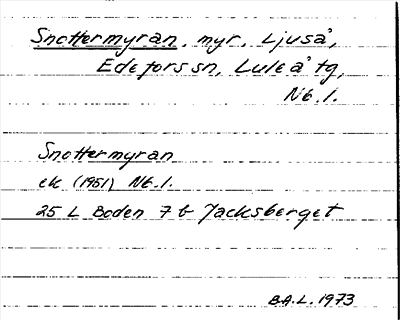 Snottermyran, myr, Ljuså,
Edefors sn, Luleå tg,
Nb.l.
Snottermyran
ek (1951) Nb.l.
25 L Boden 7 b Jacksberget
B.A.L. 1973